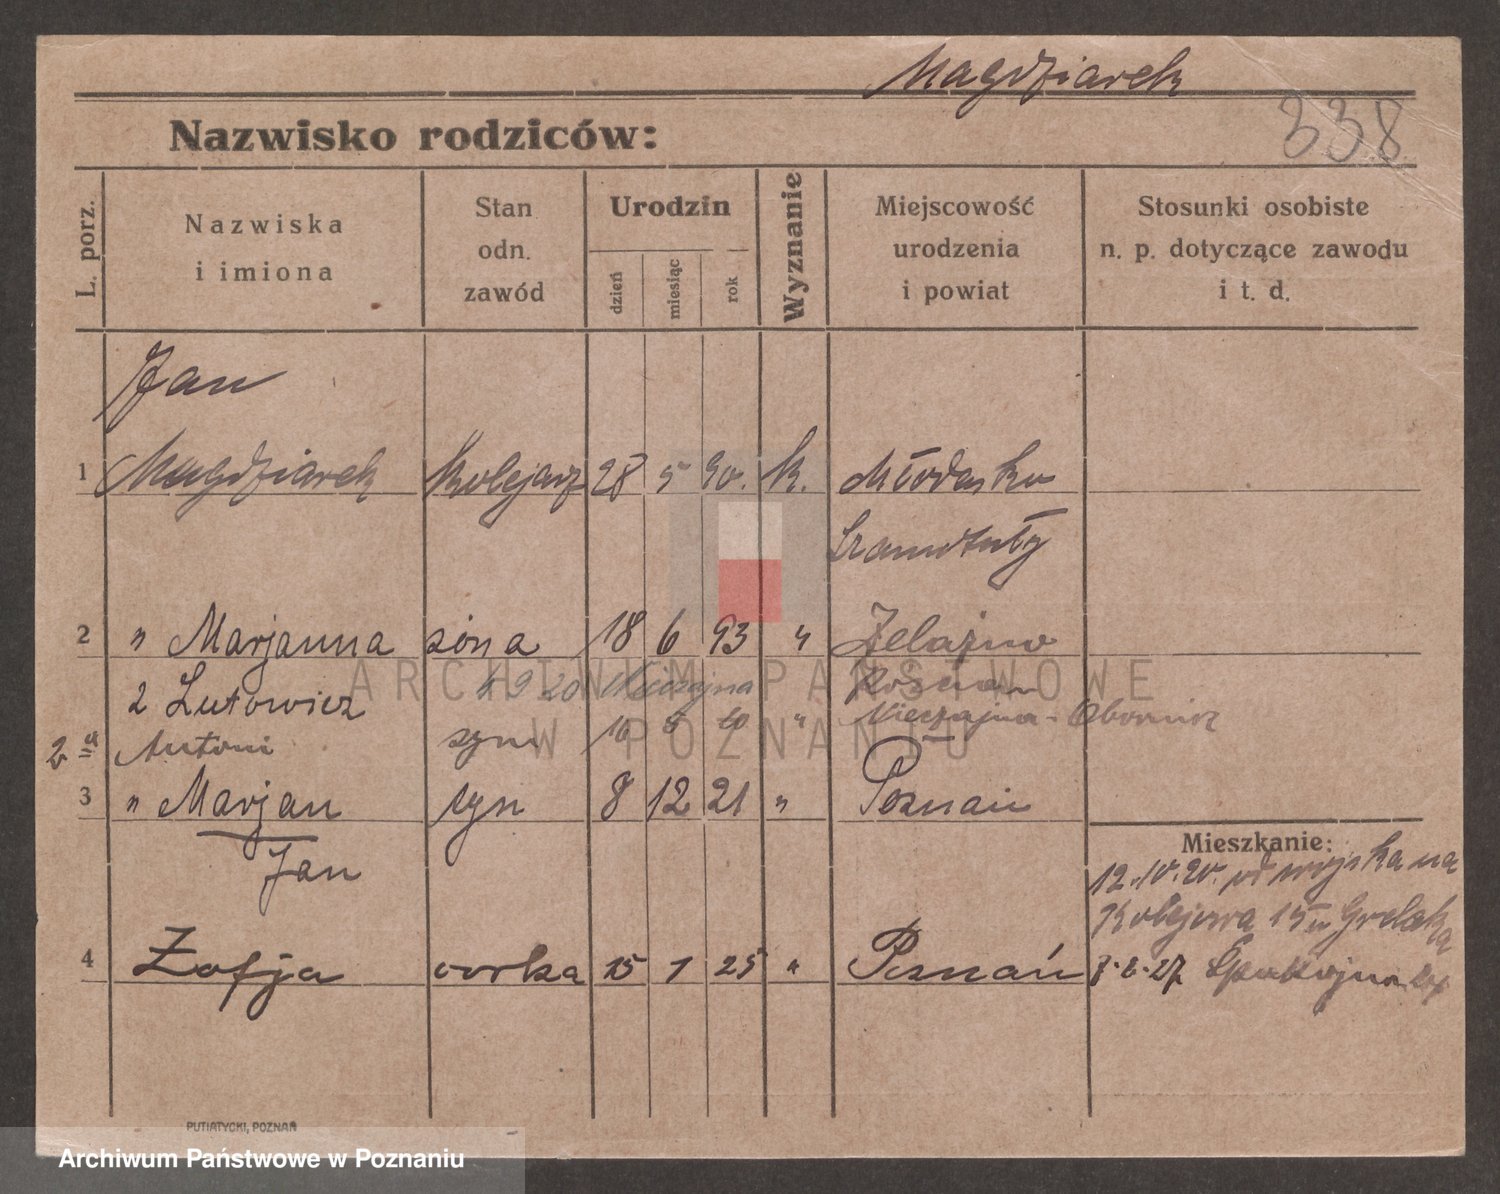 Magdziarek
338
Nazwisko rodziców:
L. porz.
Nazwiska
i imiona
Stan
odn.
zawód
Urodzin
dzień
miesiąc
rok
Wyznanie
Miejscowość
urodzenia
i powiat
Stosunki osobiste
n. p. dotyczące zawodu
i t. d.
Jan
1 Magdziarek Kolejarz 28 5 90. k. Młodasko
Szamotuły
2 " Marjanna żona 18 6 93 " Żelazno
z Lutowicz 4 9 20 Nieczajna
2a Antoni syn 16 5 " Nieczajna - Obornik
3 " Marjan syn 8 12 21 " Poznań
Jan
4 Zofja córka 15 1 25 " Poznań
Mieszkanie:
12.10.20. od wojska na
Kolejowa 15 Grelak
27 Spokojna
PUTIATYCKI, POZNAŃ
ARCHIWUM PAŃSTWOWE
W POZNANIU
Archiwum Państwowe w Poznaniu